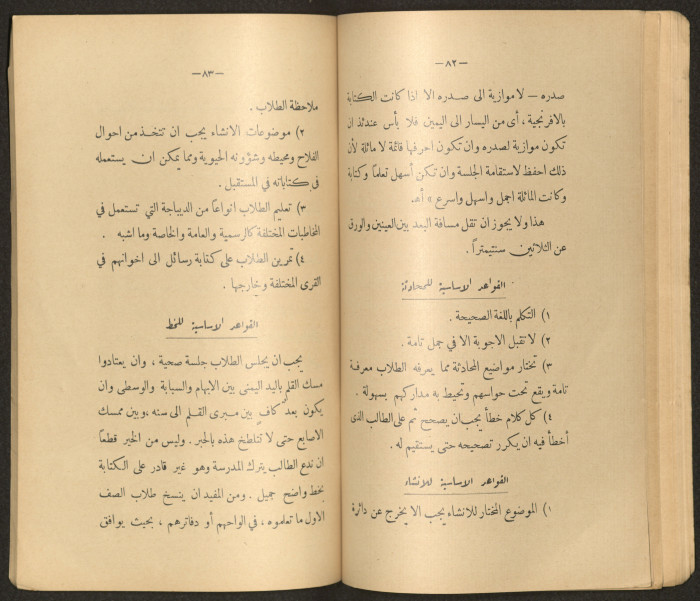 — ٨٢ —
صدره — لا موازية الى صدره الا اذا كانت الكتابة
بالافرنجية ، أى من اليسار الى اليمين فلا بأس عندئذ ان
تكون موازية لصدره وان تكون احرفها قائمة لا ماثلة لأن
ذلك احفظ لاستقامة الجلسة وان تكن أسهل تعلماً وكتابة
وكانت الماثلة اجمل واسهل واسرع » أهـ
هذا ولا يجوز ان تقل مسافة البعد بين العينين والورق
عن الثلاثين سنتيمتراً .
القواعد الاساسية للمحادثة
١) التكلم باللغة الصحيحة .
٢) لا تقبل الاجوبة الا في جمل تامة .
٣) تختار مواضيع المحادثة مما يعرفه الطلاب معرفة
تامة ويقع تحت حواسهم وتحيط به مداركهم بسهولة .
٤) كل كلام خطأ يجب ان يصحح ثم على الطالب الذى
أخطأ فيه ان يكرر تصحيحه حتى يستقيم له .
القواعد الاساسية للانشاء
١) الموضوع المختار للانشاء يجب الا يخرج عن دائرة
— ٨٣ —
ملاحظة الطلاب .
٢) موضوعات الانشاء يجب ان تتخذ من احوال
الفلاح ومحيطه وشؤونه الحيوية ومما يمكن ان يستعمله
في كتاباته في المستقبل .
٣) تعليم الطلاب انواعاً من الديباجة التي تستعمل في
المخاطبات المختلفة كالرسمية والعامة والخاصة وما اشبه .
٤) تمرين الطلاب على كتابة رسائل الى اخوانهم في
القرى المختلفة وخارجها .
القواعد الاساسية للخط
يجب ان يجلس الطلاب جلسة صحية ، وان يعتادوا
مسك القلم باليد اليمنى بين الابهام والسبابة والوسطى وان
يكون بعدٌ كافٍ بين مبرى القلم الى سنه ،وبين ممسك
الاصابع حتى لا تتلطخ هذه بالحبر. وليس من الخير قطعاً
ان ندع الطالب يترك المدرسة وهو غير قادر على الكتابة
بخط واضح جميل . ومن المفيد ان ينسخ طلاب الصف
الاول ما تعلموه ، في الواحهم أو دفاترهم ، بحيث يوافق